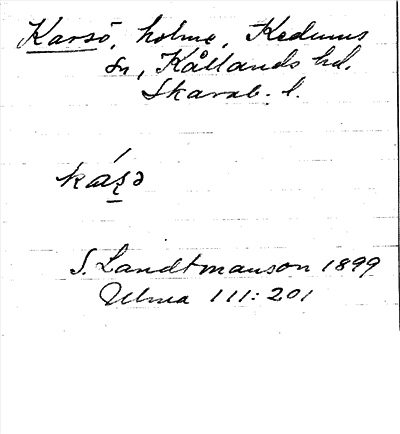 Karsö, holme, Kedums
sn, Kållands hd.
Skarab. l.
kás̱ə
S. Landtmanson 1899
Ulma 111:201